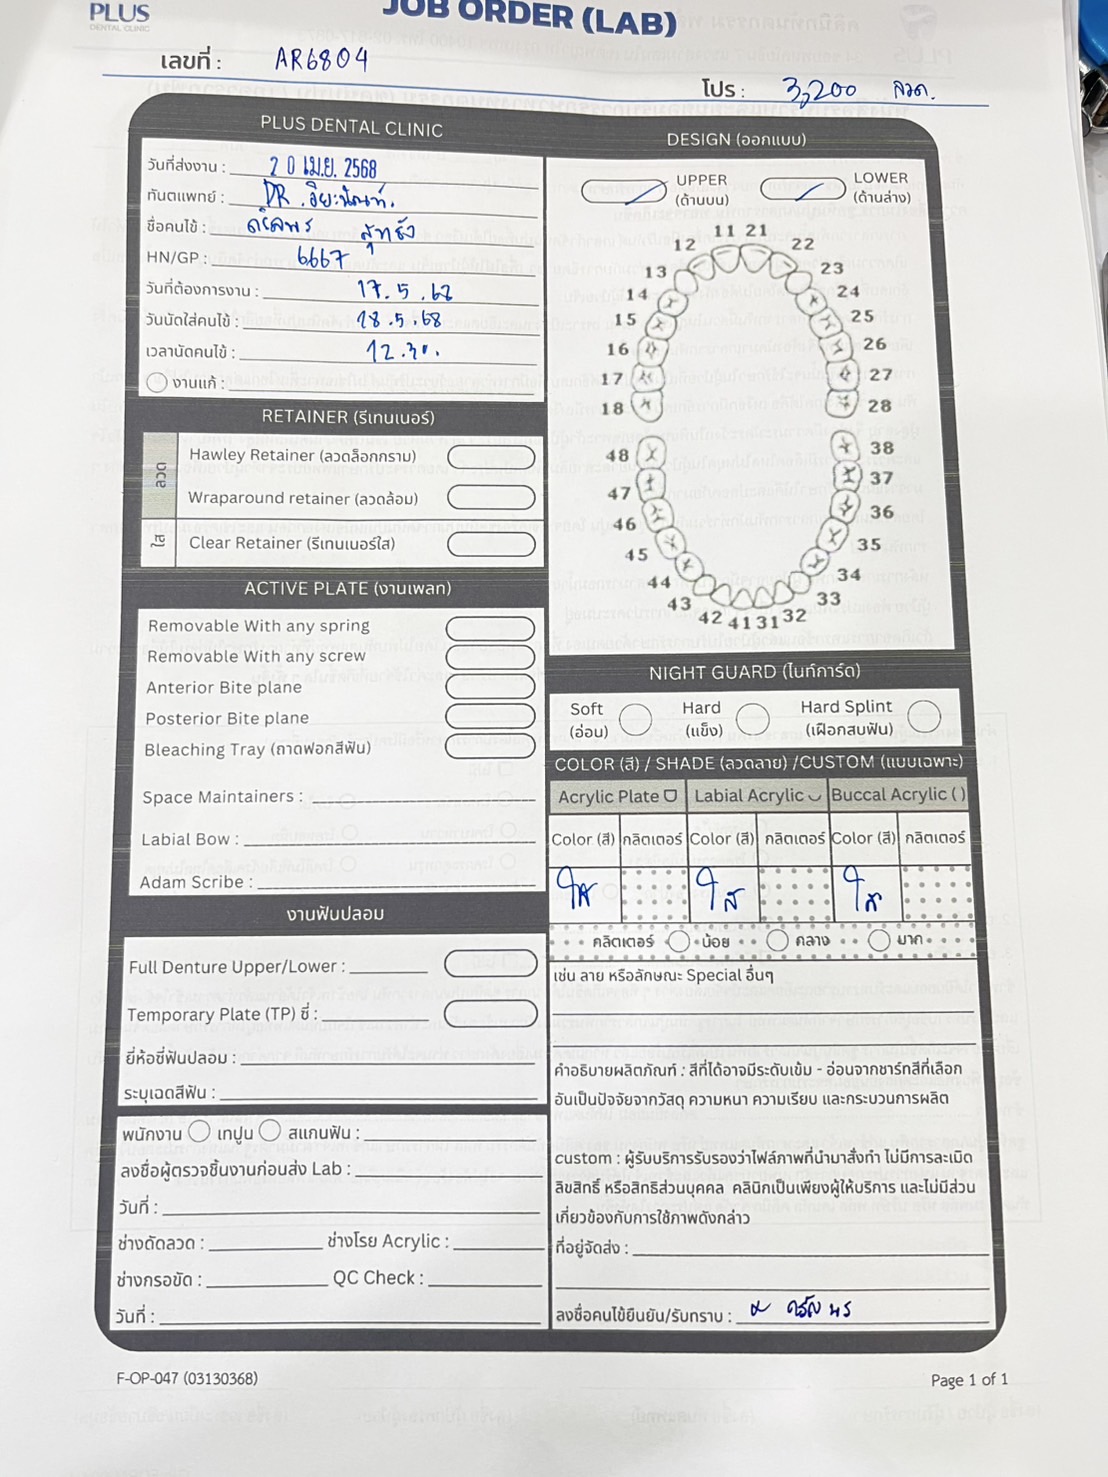 PLUS
DENTAL CLINIC
JOB ORDER (LAB)
เลขที่ : AR6804
โปร : 3,200 ลวด.
PLUS DENTAL CLINIC
วันที่ส่งงาน : 20 เม.ย. 2568
ทันตแพทย์ : DR.
ชื่อคนไข้ :
HN/GP : 6667
วันที่ต้องการงาน : 17.5.68
วันนัดใส่คนไข้ : 18.5.68
เวลานัดคนไข้ : 12.30.
งานแก้ :
RETAINER (รีเทนเนอร์)
ลวด
Hawley Retainer (ลวดล็อกกราม)
Wraparound retainer (ลวดล้อม)
ใส
Clear Retainer (รีเทนเนอร์ใส)
ACTIVE PLATE (งานเพลท)
Removable With any spring
Removable With any screw
Anterior Bite plane
Posterior Bite plane
Bleaching Tray (ถาดฟอกสีฟัน)
Space Maintainers :
Labial Bow :
Adam Scribe :
งานฟันปลอม
Full Denture Upper/Lower :
Temporary Plate (TP) ซี่ :
ยี่ห้อซี่ฟันปลอม :
ระบุเฉดสีฟัน :
พนักงาน เทปูน สแกนฟัน :
ลงชื่อผู้ตรวจชิ้นงานก่อนส่ง Lab :
วันที่ :
ช่างดัดลวด : ช่างโรย Acrylic :
ช่างกรอขัด : QC Check :
วันที่ :
DESIGN (ออกแบบ)
UPPER
(ด้านบน)
LOWER
(ด้านล่าง)
11 21
12 22
13 23
14 24
15 25
16 26
17 27
18 28
48 38
47 37
46 36
45 35
44 34
43 33
42 41 31 32
NIGHT GUARD (ไนท์การ์ด)
Soft
(อ่อน)
Hard
(แข็ง)
Hard Splint
(เฝือกสบฟัน)
COLOR (สี) / SHADE (ลวดลาย) /CUSTOM (แบบเฉพาะ)
Acrylic Plate Labial Acrylic Buccal Acrylic ( )
Color (สี) กลิตเตอร์ Color (สี) กลิตเตอร์ Color (สี) กลิตเตอร์
ใส ใส ใส
กลิตเตอร์ น้อย กลาง มาก
เช่น ลาย หรือลักษณะ Special อื่นๆ
คำอธิบายผลิตภัณฑ์ : สีที่ได้อาจมีระดับเข้ม - อ่อนจากชาร์ทสีที่เลือก
อันเป็นปัจจัยจากวัสดุ ความหนา ความเรียบ และกระบวนการผลิต
custom : ผู้รับบริการรับรองว่าไฟล์ภาพที่นำมาสั่งทำ ไม่มีการละเมิด
ลิขสิทธิ์ หรือสิทธิส่วนบุคคล คลินิกเป็นเพียงผู้ให้บริการ และไม่มีส่วน
เกี่ยวข้องกับการใช้ภาพดังกล่าว
ที่อยู่จัดส่ง :
ลงชื่อคนไข้ยืนยัน/รับทราบ :
F-OP-047 (03130368)
Page 1 of 1